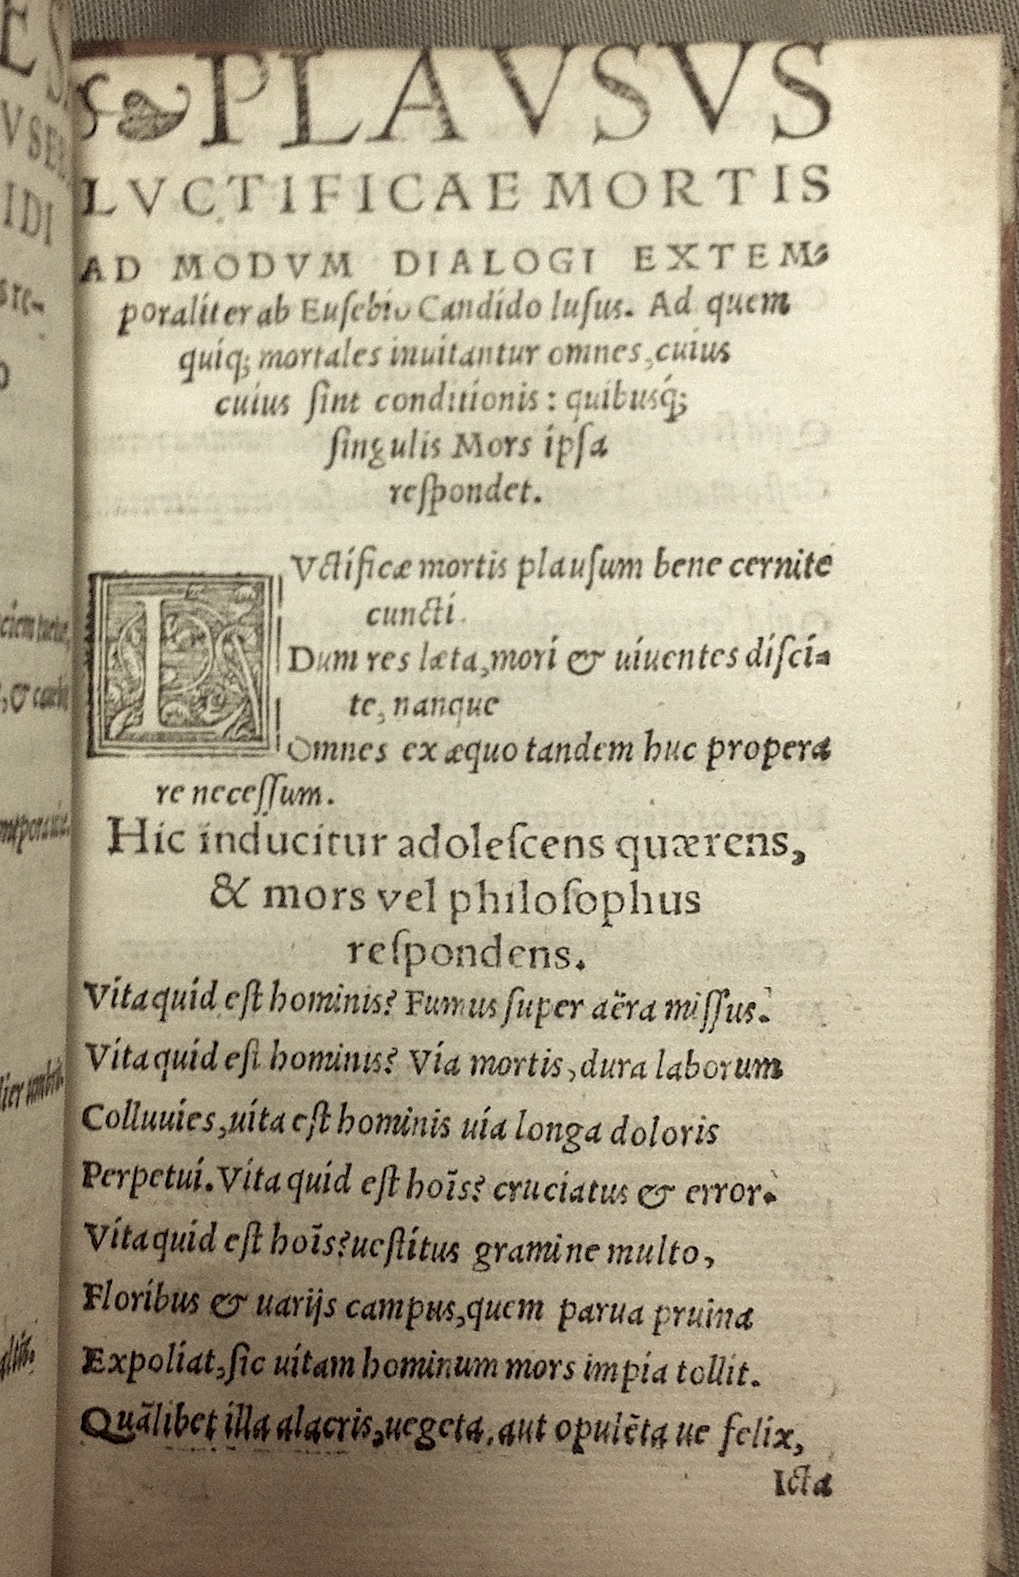 ES
❧PLAVSVS
VSEB
LVCTIFICAE MORTIS
IDI
AD MODVM DIALOGI EXTEM⸗
poraliter ab Euſebio Candido luſus. Ad quem
quiq; mortales inuitantur omnes, cuius
cuius ſint conditionis: quibusq́;
ſingulis Mors ipſa
reſpondet.
LVctificæ mortis plauſum bene cernite
cuncti.
Dum res læta, mori & uiuentes diſci⸗
te, nanque
Omnes ex æquo tandem huc propera
re neceſſum.
Hic inducitur adoleſcens quærens,
& mors vel philoſophus
reſpondens.
Vita quid eſt hominis? Fumus ſuper aëra miſſus.
Vita quid eſt hominis? Via mortis, dura laborum
Colluuies, uita eſt hominis uia longa doloris
Perpetui. Vita quid eſt hoīs? cruciatus & error.
Vita quid eſt hoīs? ueſtitus gramine multo,
Floribus & uarijs campus, quem parua pruina
Expoliat, ſic uitam hominum mors impia tollit.
Quālibet illa alacris, uegeta, aut opulēta ue felix,
Icta